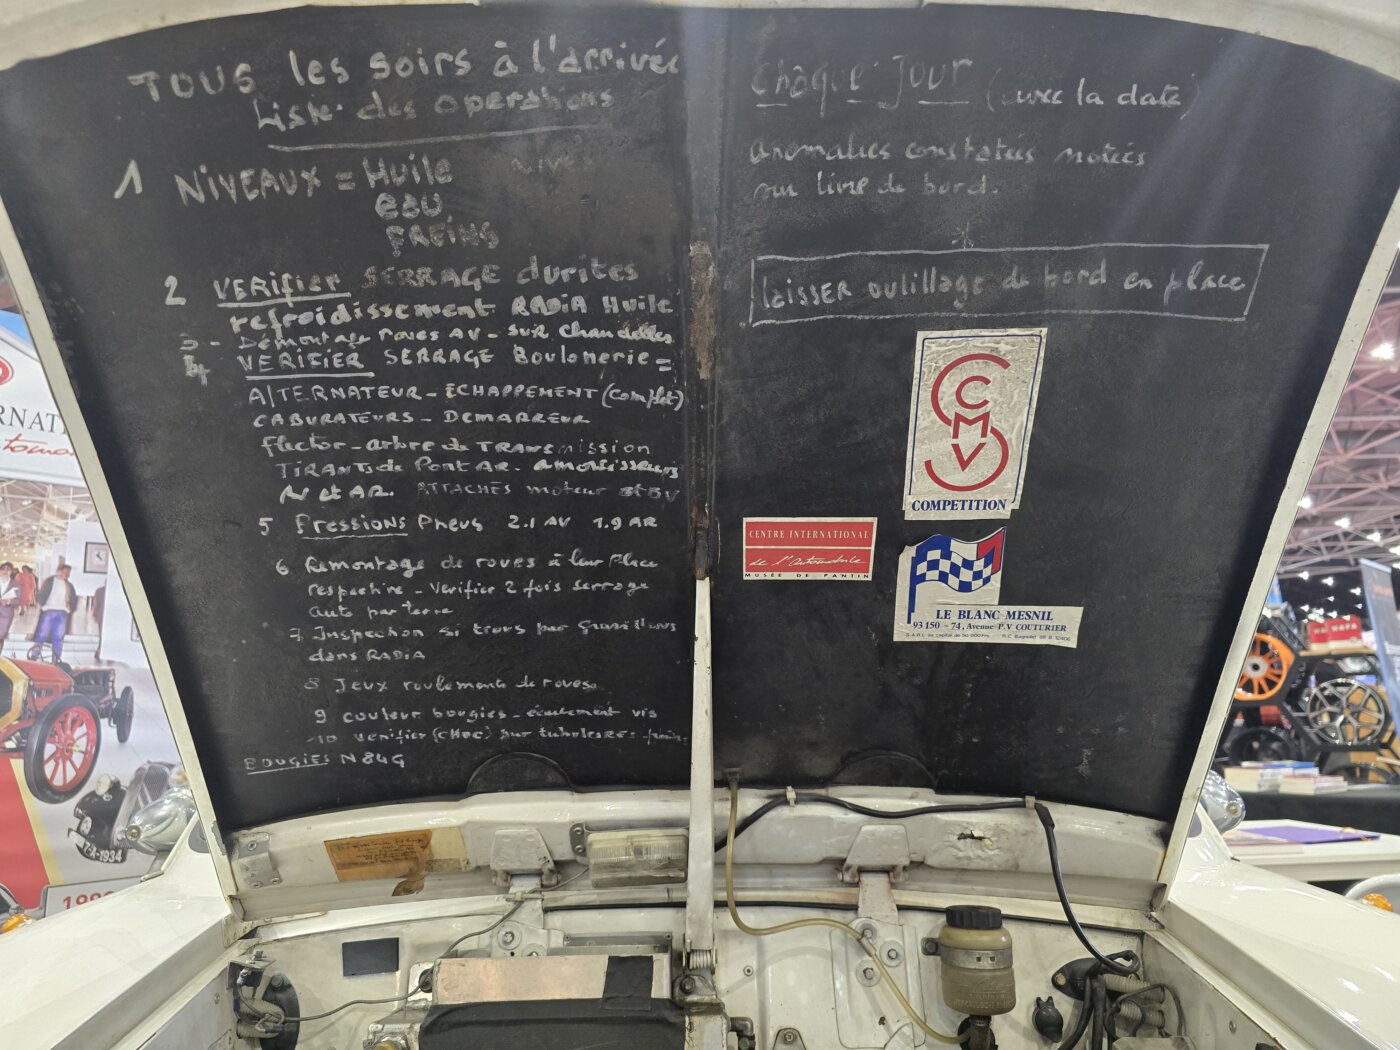 TOUS les soirs à l'arrivée
Liste des operations
1 NiVEAUX = Huile
eau
FREINS
2 VERifier SERRAGE durites
refroidissement RADiA Huile
3 - Démontage roues AV - SUR Chandelles
4 VERIFIER SERRAGE Boulonerie =
AlTERNATEUR - ECHAPPEMENT (Complet)
CABURATEURS - DEMARREUR
flector - arbre de TRANSmission
TIRANTS de Pont AR. amortisseurs
AV et AR. ATTACHES moteur et BV
5 Pressions Pneus 2.1 AV 1.9 AR
6 Remontage de roues à leur Place
respective - Verifier 2 fois serrage
auto par terre
7 Inspection si trous par Gravillons
dans RADiA
8 Jeux roulements de roues
9 couleur bougies - écartement vis
10 Verifier (CHOC) sur tubulaires
BOUGIES N 84G
Châque Jour (avec la date)
anomalies constatées notées
sur livre de bord.
*
laiSSER outillage de bord en place
CMV
COMPETITION
CENTRE INTERNATIONAL
de l'Automobile
MUSÉE DE PANTIN
LE BLANC MESNIL
93150 - 74, Avenue P.V COUTURIER
S.A.R.L. au capital de 50 000 Frs R.C. Bagnolet 68 B 12406
RNATI
T-A-1934